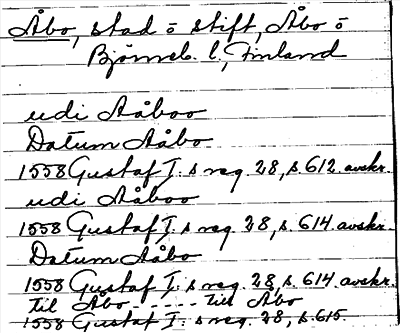 Åbo, stad o stift, Åbo o
Björneb. l., Finland
udi Aåboo
Datum Aåbo
1558 Gustaf I. s reg. 28, s. 612 avskr.
udi Aåboo
1558 Gustaf I. s reg. 28, s. 614 avskr.
Datum Aåbo
1558 Gustaf I. s reg. 28, s. 614 avskr.
til Åbo - - - - - till Åbo
1558 Gustaf I. s reg. 28, s. 615